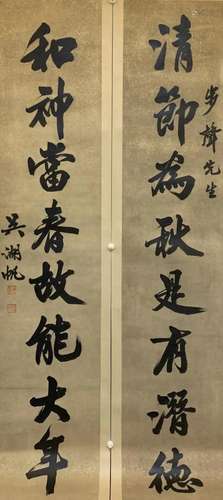 清節為秋是有潛德
步聲先生
和神當春故能大年
吳湖帆